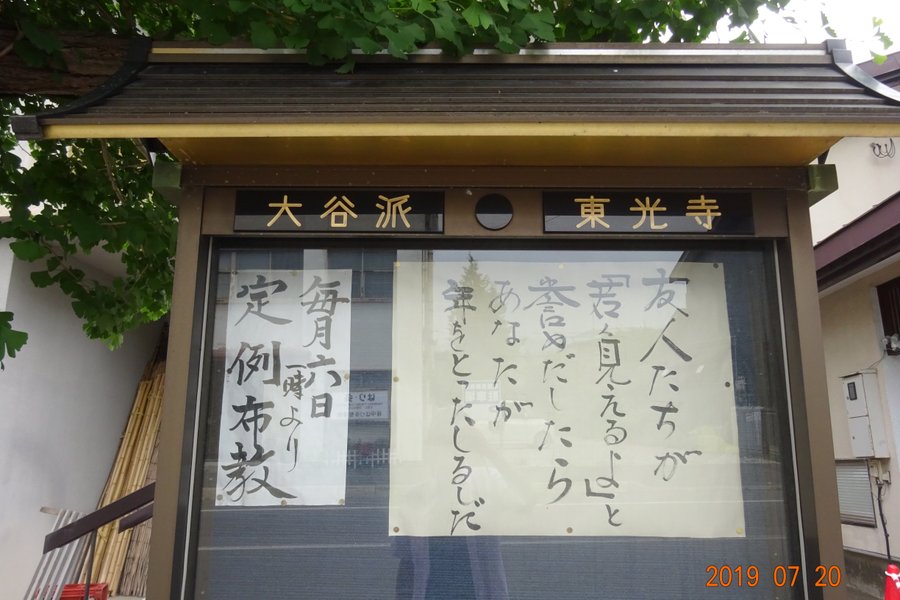 大谷派
東光寺
友人たちが
「君、若く見えるよ」と
誉めだしたら
あなたが
年をとったしるしだ
毎月六日
一時より
定例布教
2019 07 20